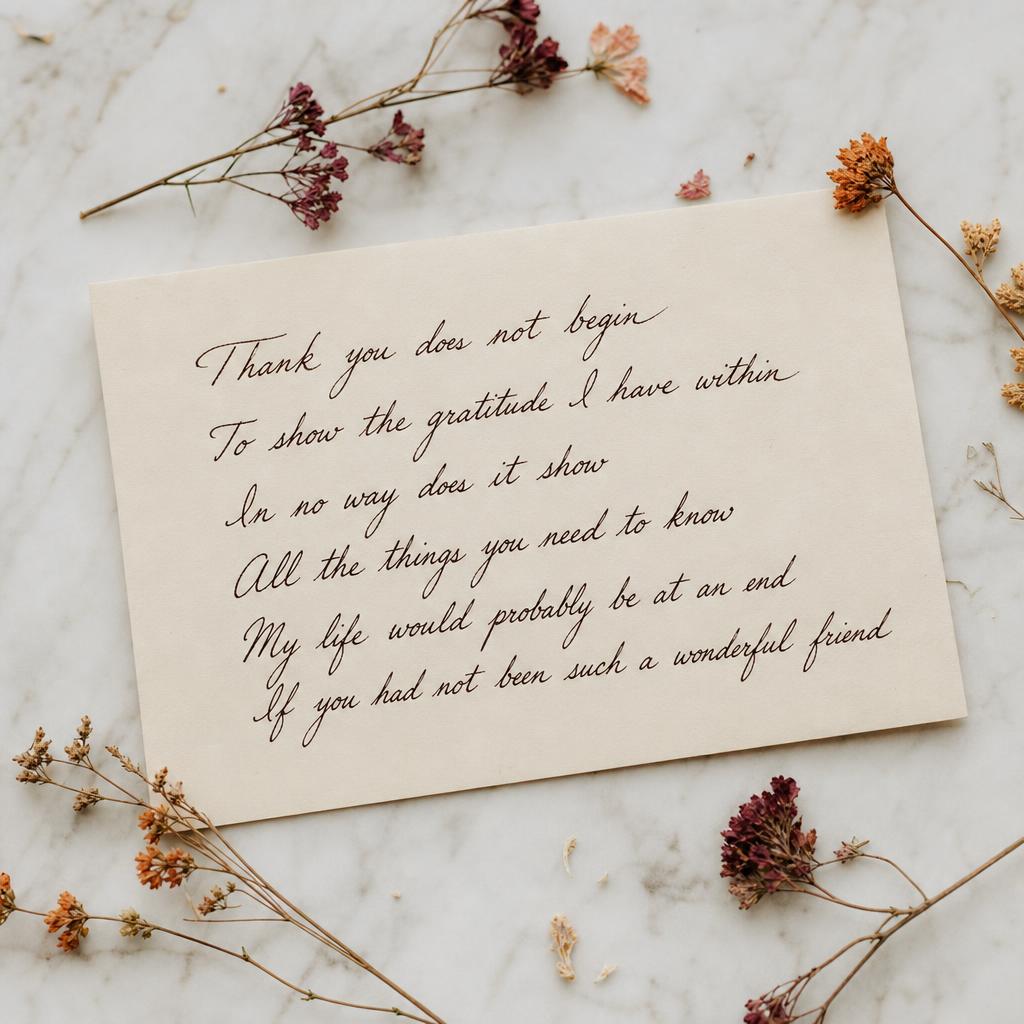 Thank you does not begin
To show the gratitude I have within
In no way does it show
All the things you need to know
My life would probably be at an end
If you had not been such a wonderful friend